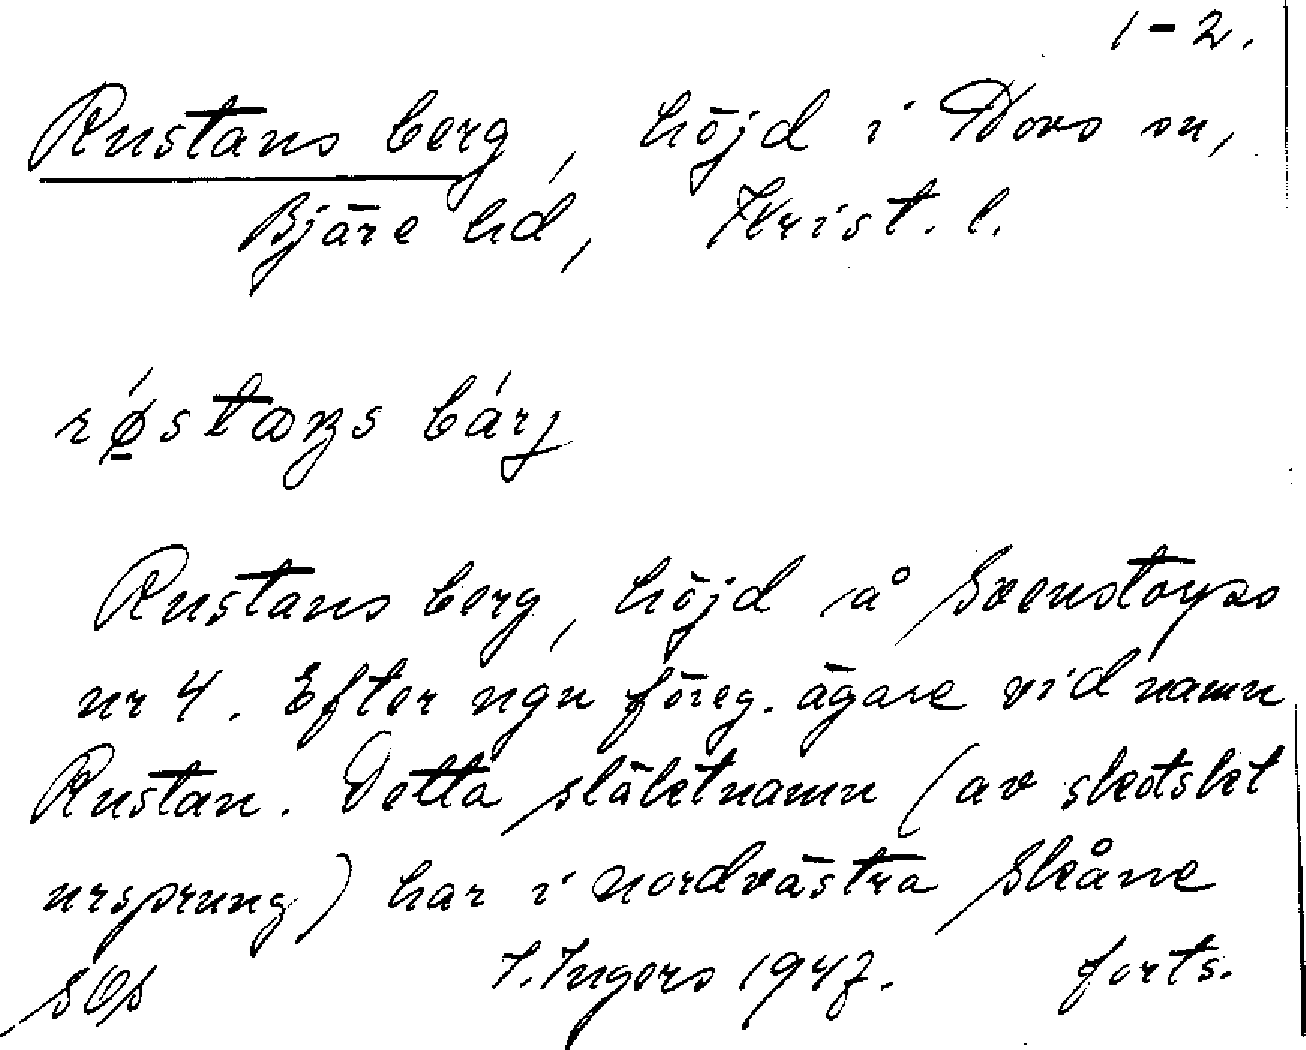 1-2.
Rustans berg, höjd i Hovs sn,
Bjäre hd, Krist. l.
røstaŋs bárj
Rustans berg, höjd å Svenstorps
nr 4. Efter ngn föreg. ägare vid namn
Rustan. Detta släktnamn (av skotskt
ursprung) har i nordvästra Skåne
I. Ingers 1947. forts.